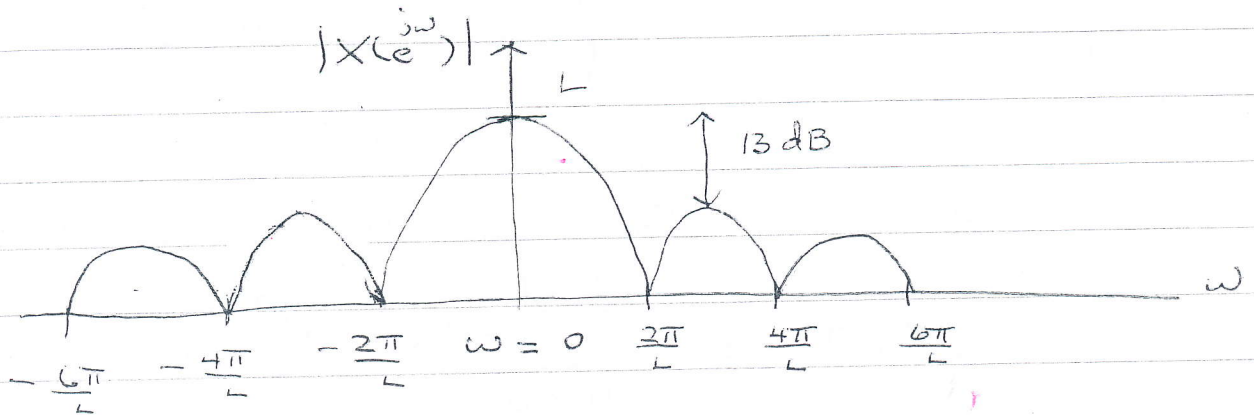 |X(e^{jω})|
L
13 dB
ω
- 6π/L
- 4π/L
- 2π/L
ω = 0
2π/L
4π/L
6π/L